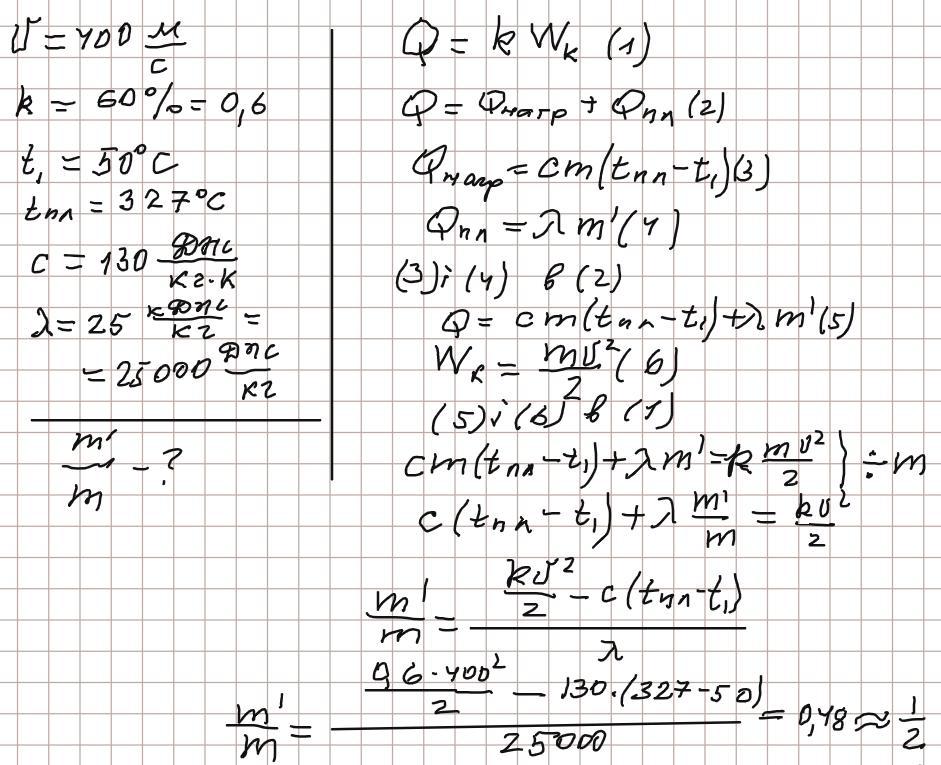 υ = 400 м/с
k = 60% = 0,6
t₁ = 50°C
tпл = 327°C
c = 130 Дж/кг·К
λ = 25 кДж/кг =
= 25000 Дж/кг
m'/m - ?
Q = k Wk (1)
Q = Qнагр + Qпл (2)
Qнагр = cm(tпл - t₁)(3)
Qпл = λ m' (4)
(3) і (4) в (2)
Q = cm(tпл - t₁) + λ m' (5)
Wk = mυ²/2 (6)
(5) і (6) в (1)
cm(tпл - t₁) + λ m' = k mυ²/2 } ÷ m
c(tпл - t₁) + λ m'/m = kυ²/2
m'/m = (kυ²/2 - c(tпл - t₁))/λ
m'/m = (0,6·400²/2 - 130·(327-50))/25000 = 0,48 ≈ 1/2